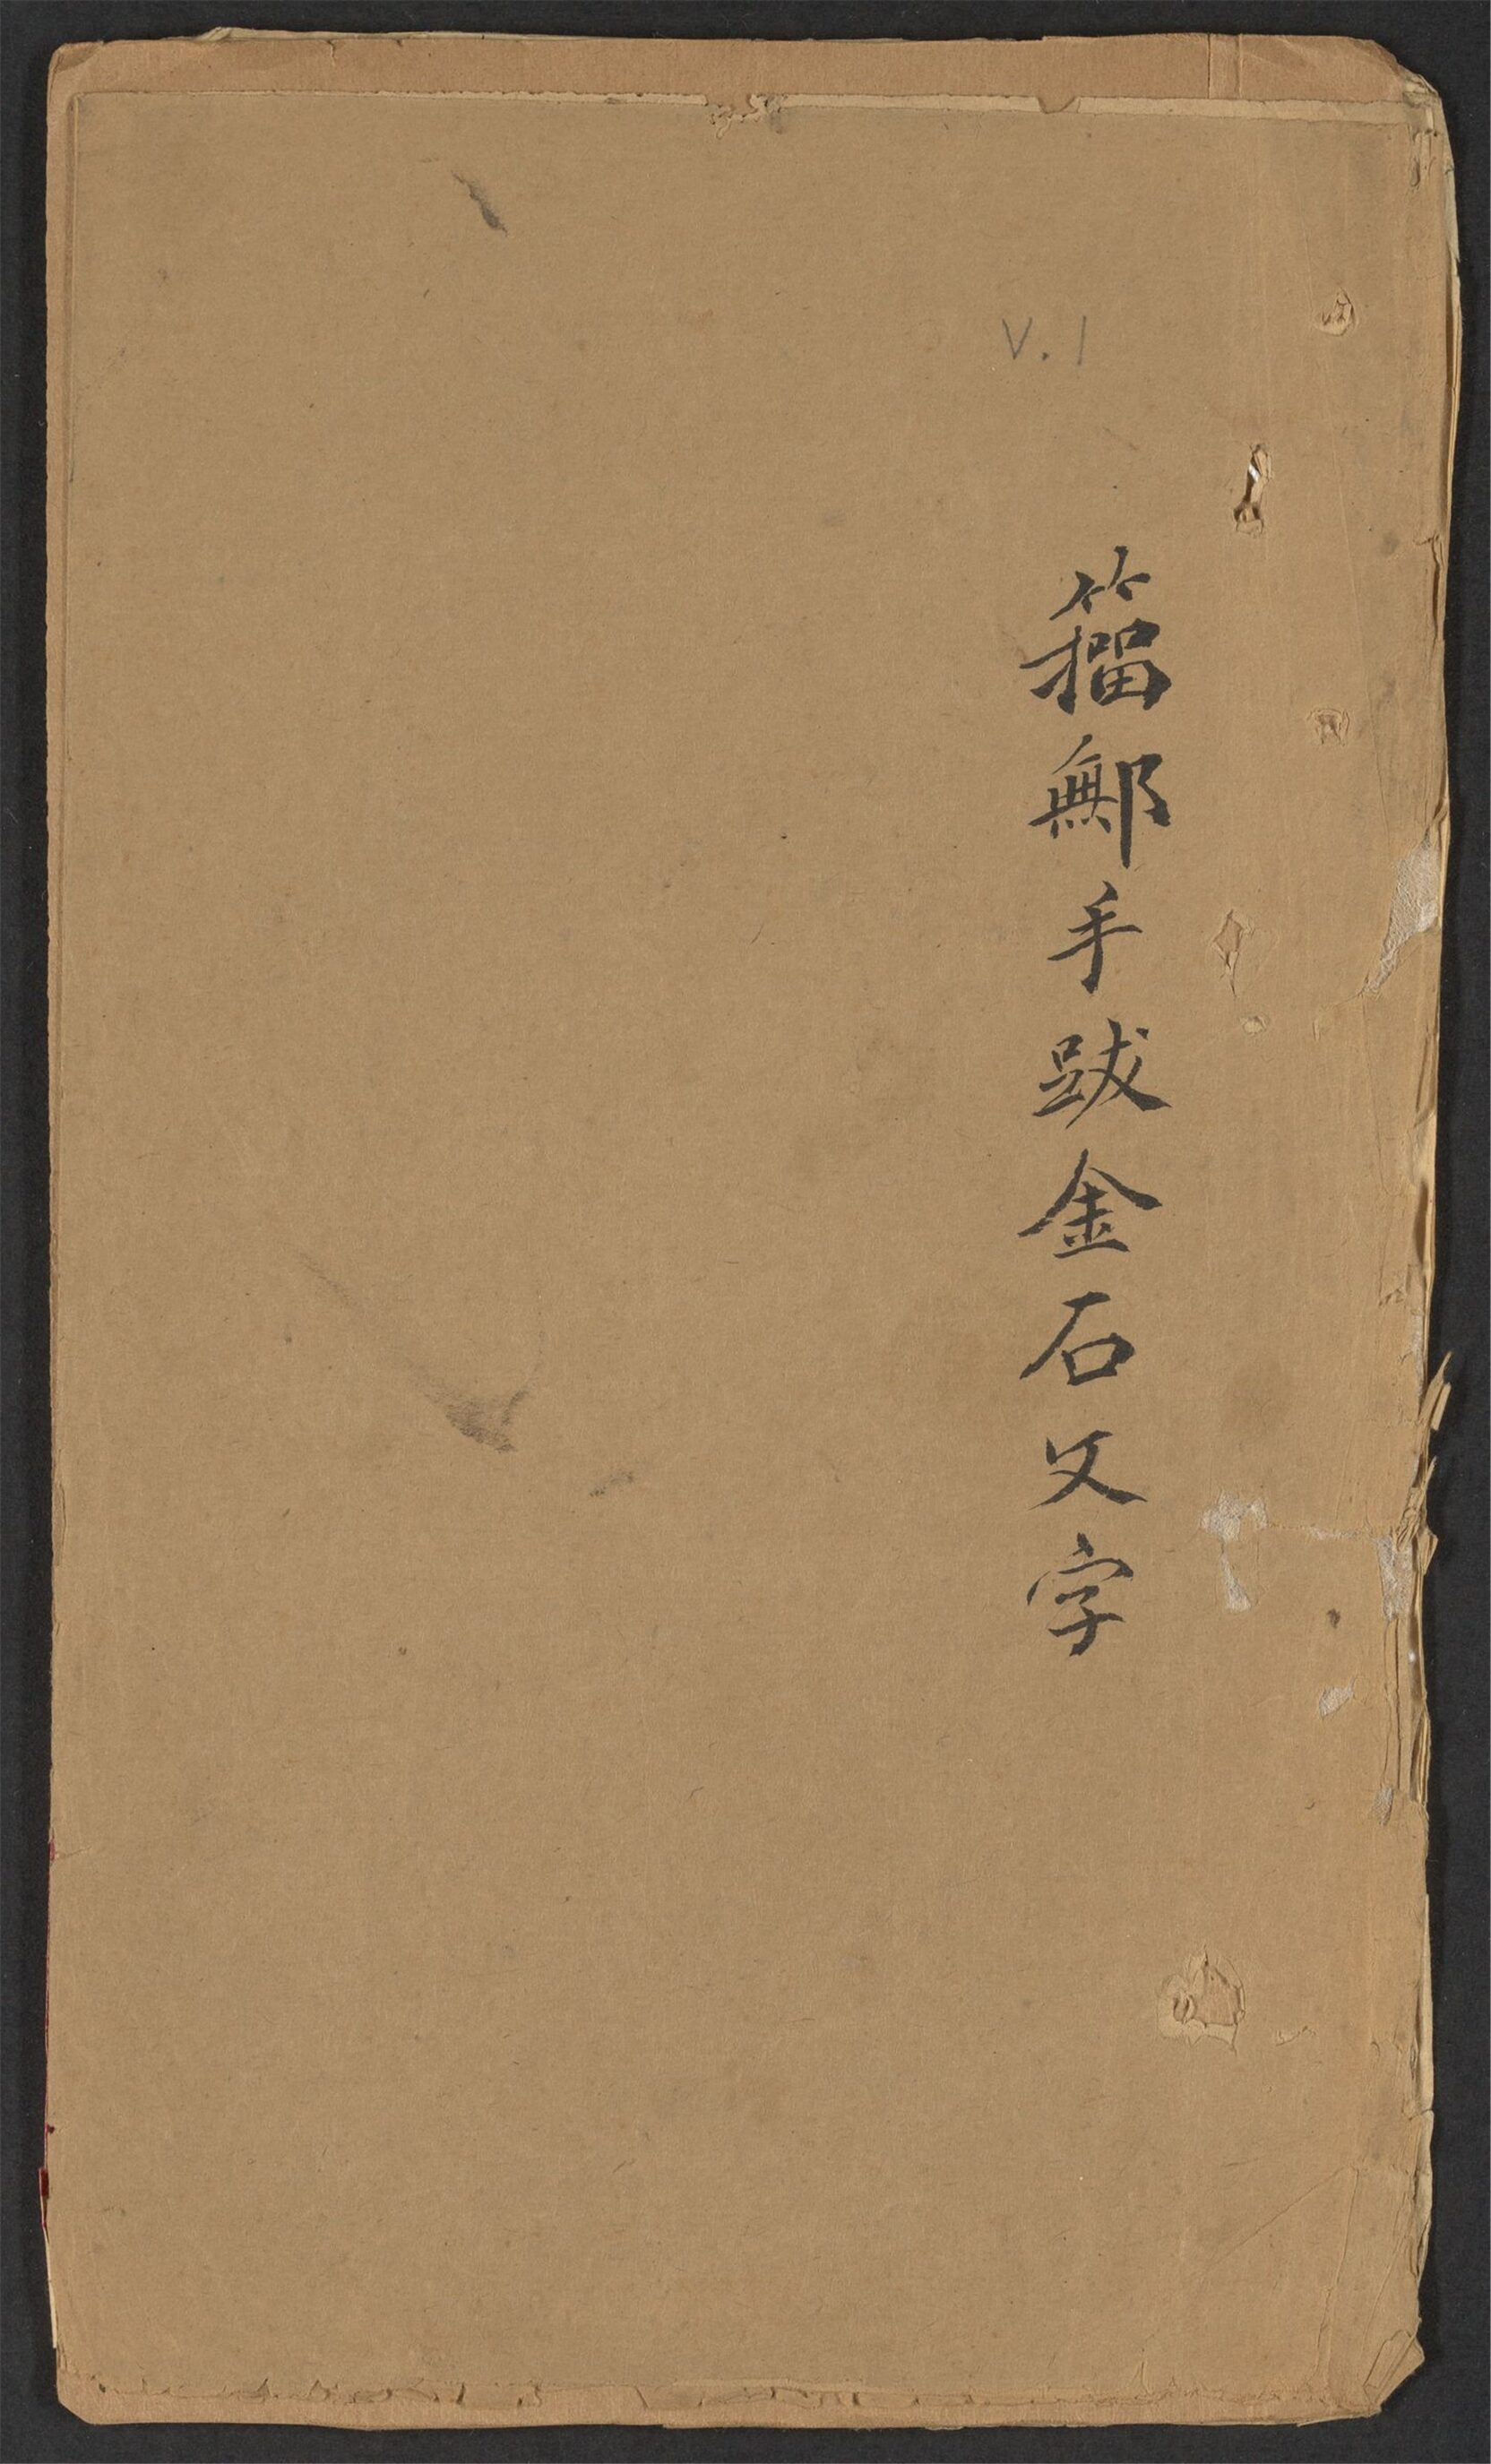 V.1
籀鄦手跋金石文字